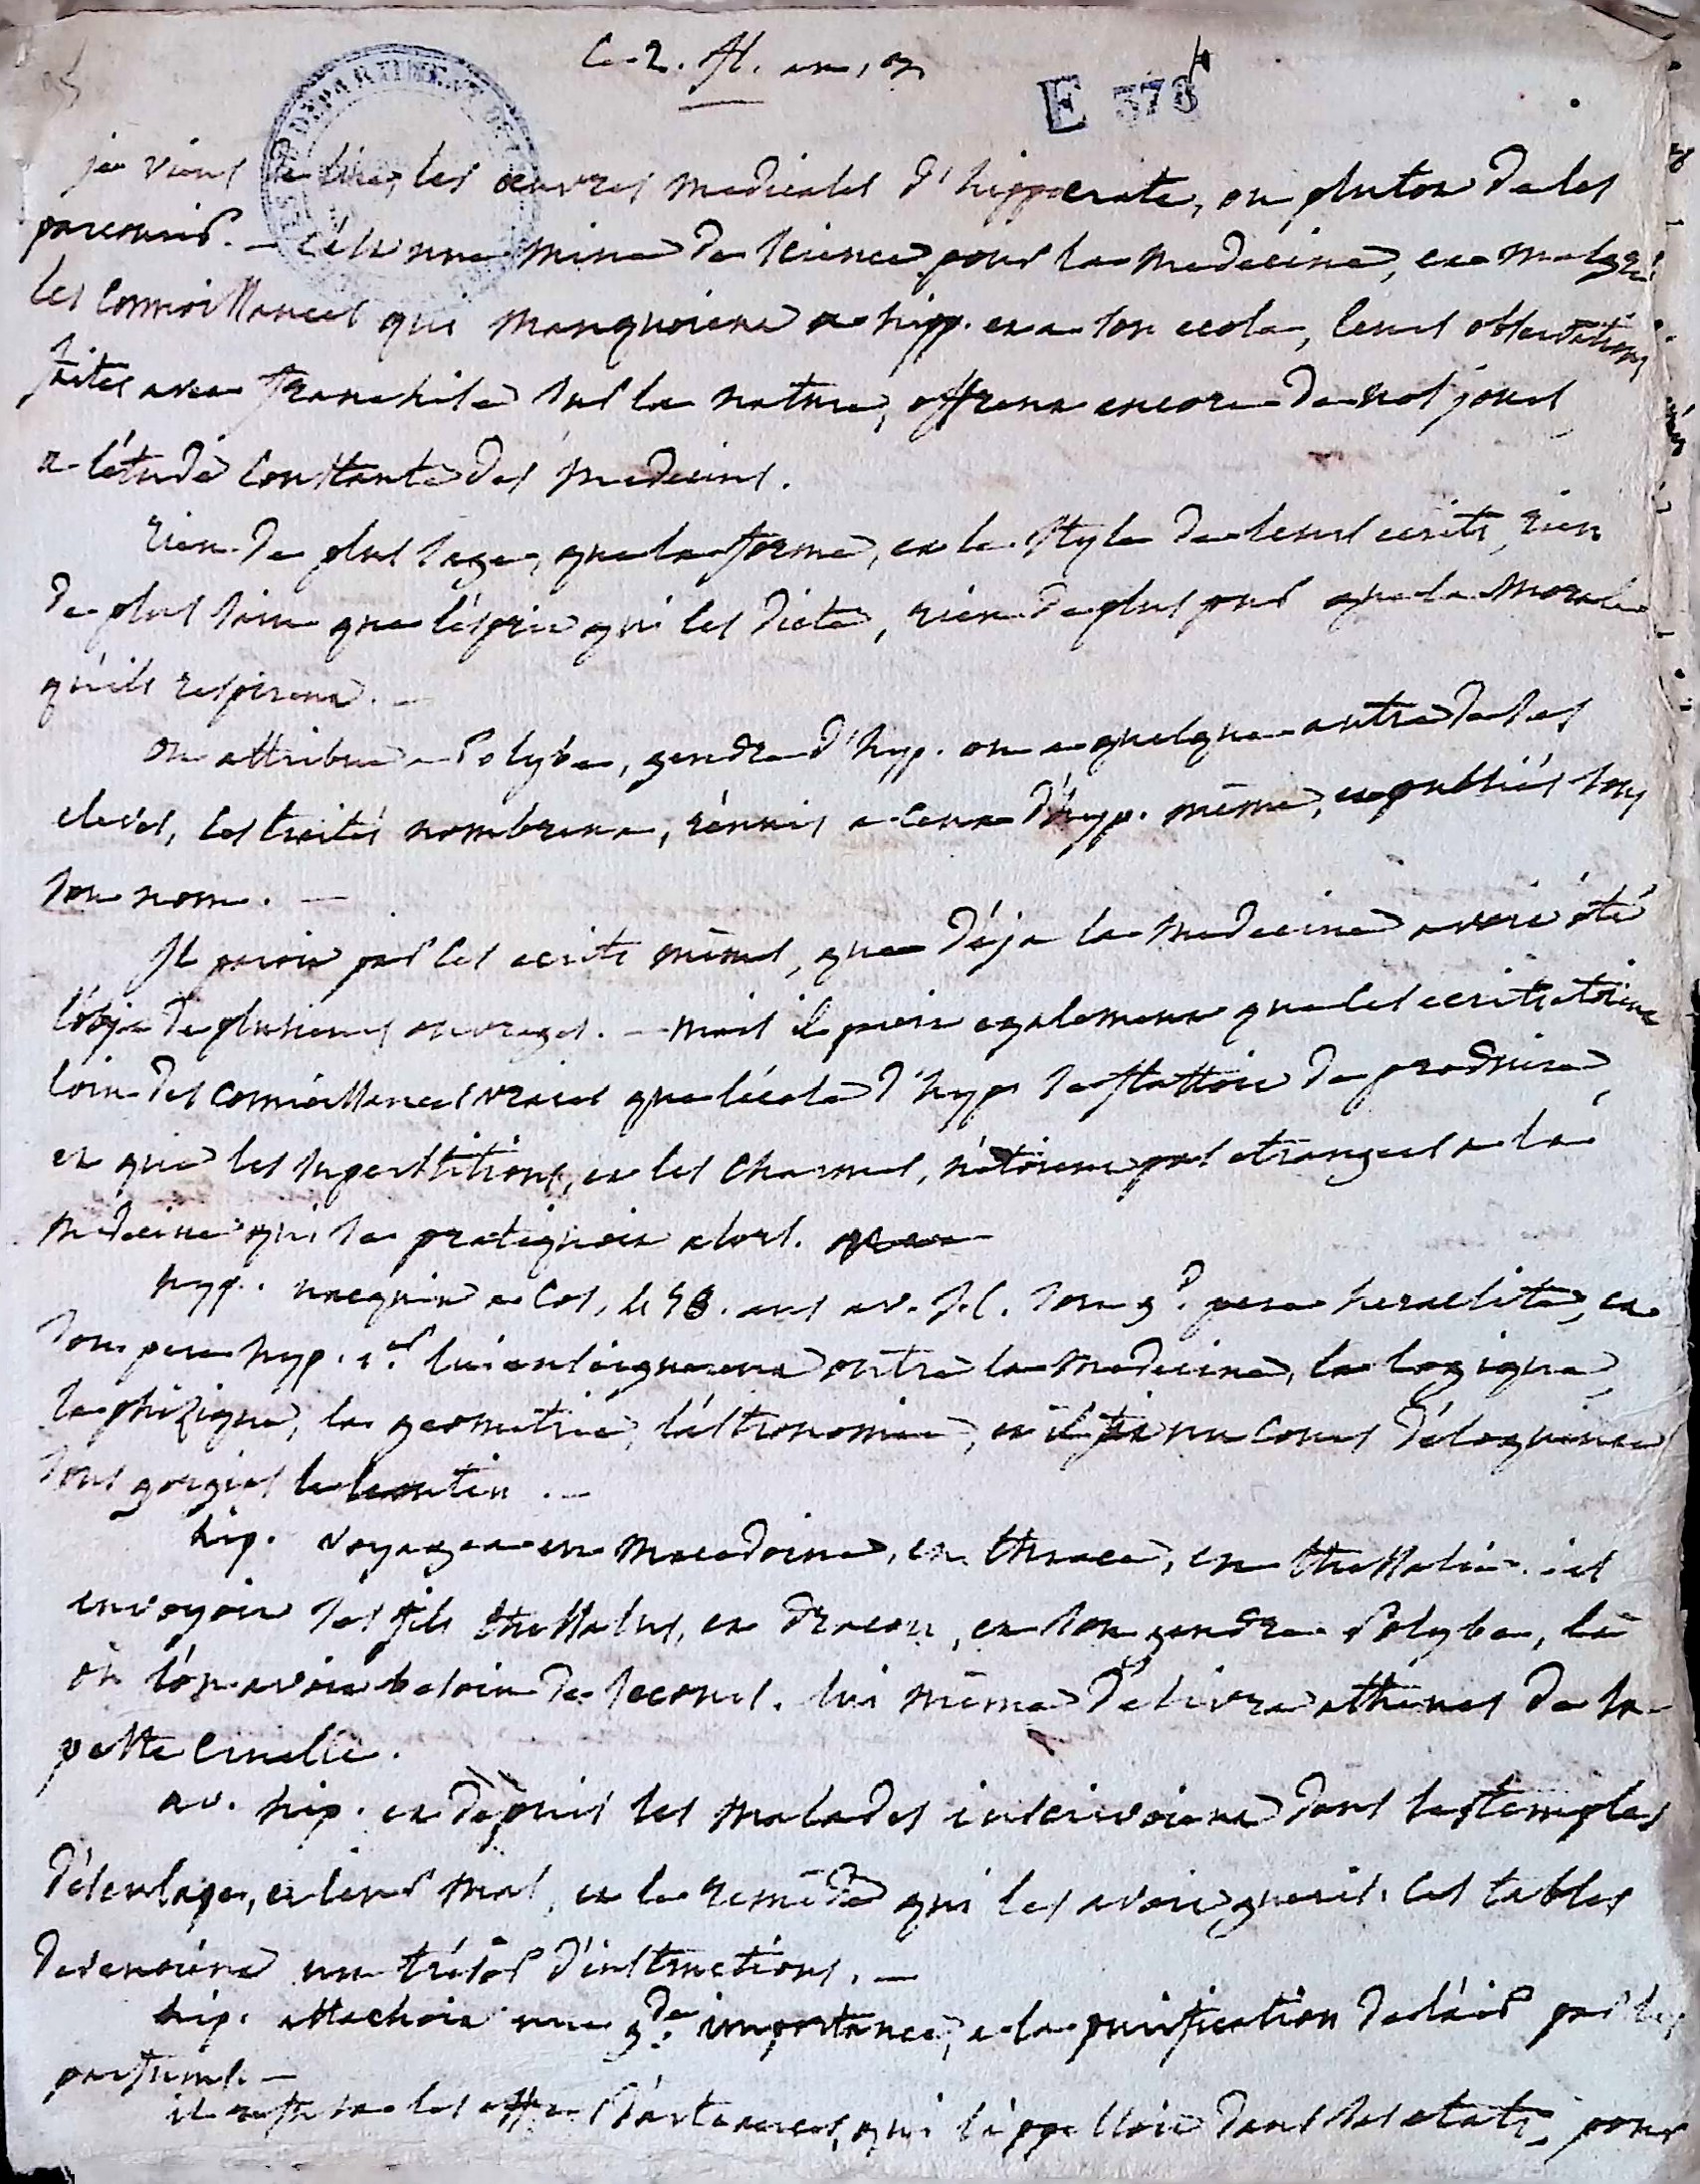 Le 2. fl. an 13
E 378
je viens de lire, les œuvres medicales d'hippocrate, ou plutot de les
parcourir. — c'est une mine de science pour la medecine, et malgré
les connoissances qui manquoient a hipp. et a son ecole, leurs observations
faites avec franchise sur la nature, offrent encore de nos jours
a l'étude constante des medecins.
rien de plus sage, que la forme, et le style de leurs ecrits, rien
de plus sain que l'esprit qui les dicte, rien de plus pur que la morale
qu'ils respirent. —
on attribue a Polybe, gendre d'hyp. ou a quelque autre de ses
eleves, les traités nombreux, réunis a ceux d'hyp. même, et publiés sous
son nom. —
Il paroit par ces ecrits mêmes, que déja la medecine avoit été
l'objet de plusieurs ouvrages. — mais il paroit egalement que ces ecrits etoient
loin des connoissances vraies que l'école d'hyp. se flattoit de produire,
et que les superstitions, et les charmes, n'étoient pas etrangers a la
medecine qui se pratiquoit alors.
hyp. nacquit a Cos, 458. ans av. J.C. son gd. pere heraclite, et
son pere hyp. 1er lui enseignerent outre la medecine, la logique
la phizique, la geometrie, l'astronomie, et il fit un cours d'éloquence
sous gorgias le leontin. —
hip. voyagea en Macedoine, en thrace, en thessalie. il
envoyoit ses fils thessalus, et dracon, et son gendre Polybe, là
où l'on avoit besoin de secours. lui même délivra athènes de sa
peste cruelle.
av. hip. et depuis les malades inscrivoient dans les temples
d'esculape, et leur mal, et le remède qui les avoit gueris. ces tables
devenoient un trésor d'instructions. —
hip. attachoit une gde. importance, a la purification de l'air par les
parfums. —
il refusa les offres d'artaxerces, qui l'appelloit dans ses etats, pour